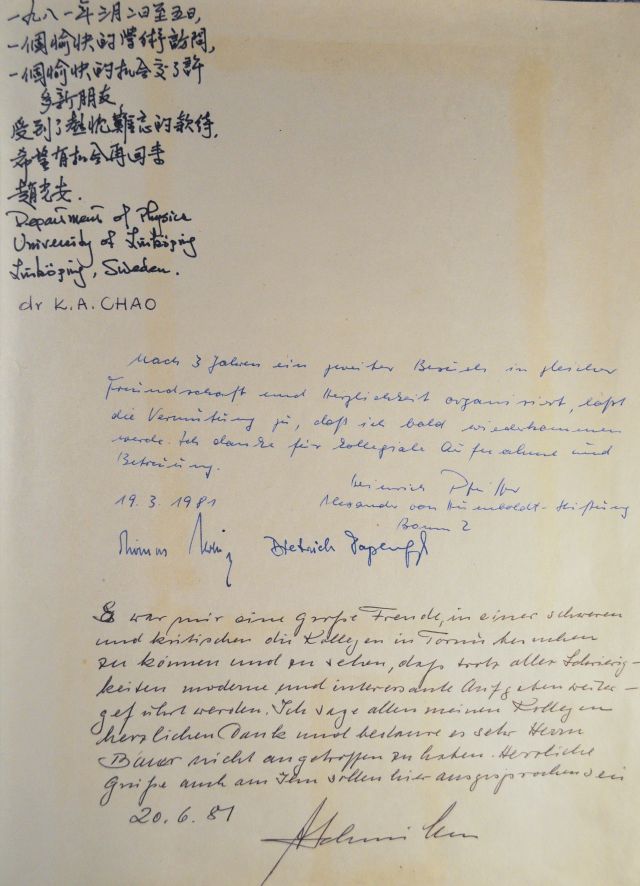 一九八一年三月二日至五日,
一個愉快的學術訪問,
一個愉快的机会交了許
多新朋友,
受到了熱忱難忘的款待,
希望有机会再回來
趙光安.
Department of Physics
University of Linköping
Linköping, Sweden.
dr K.A. CHAO
Nach 3 Jahren ein zweiter Besuch in gleicher
Freundschaft und Herzlichkeit organisiert, läßt
die Vermutung zu, daß ich bald wiederkommen
werde. Ich danke für kollegiale Aufnahme und
Betreuung.
Heinrich Pfeiffer
19.3.1981
Alexander von Humboldt-Stiftung
Bonn 2
Thomas
Dietrich Papenfuß
Es war mir eine große Freude, in einer schweren
und kritischen die Kollegen in Toruń besuchen
zu können und zu sehen, daß trotz aller Schwierig-
keiten moderne und interessante Aufgaben weiter-
geführt werden. Ich sage allen meinen Kollegen
herzlichen Dank und bedaure es sehr Herrn
nicht angetroffen zu haben. Herzliche
Grüße auch an Ihn sollen hier ausgesprochen sein
20.6.81